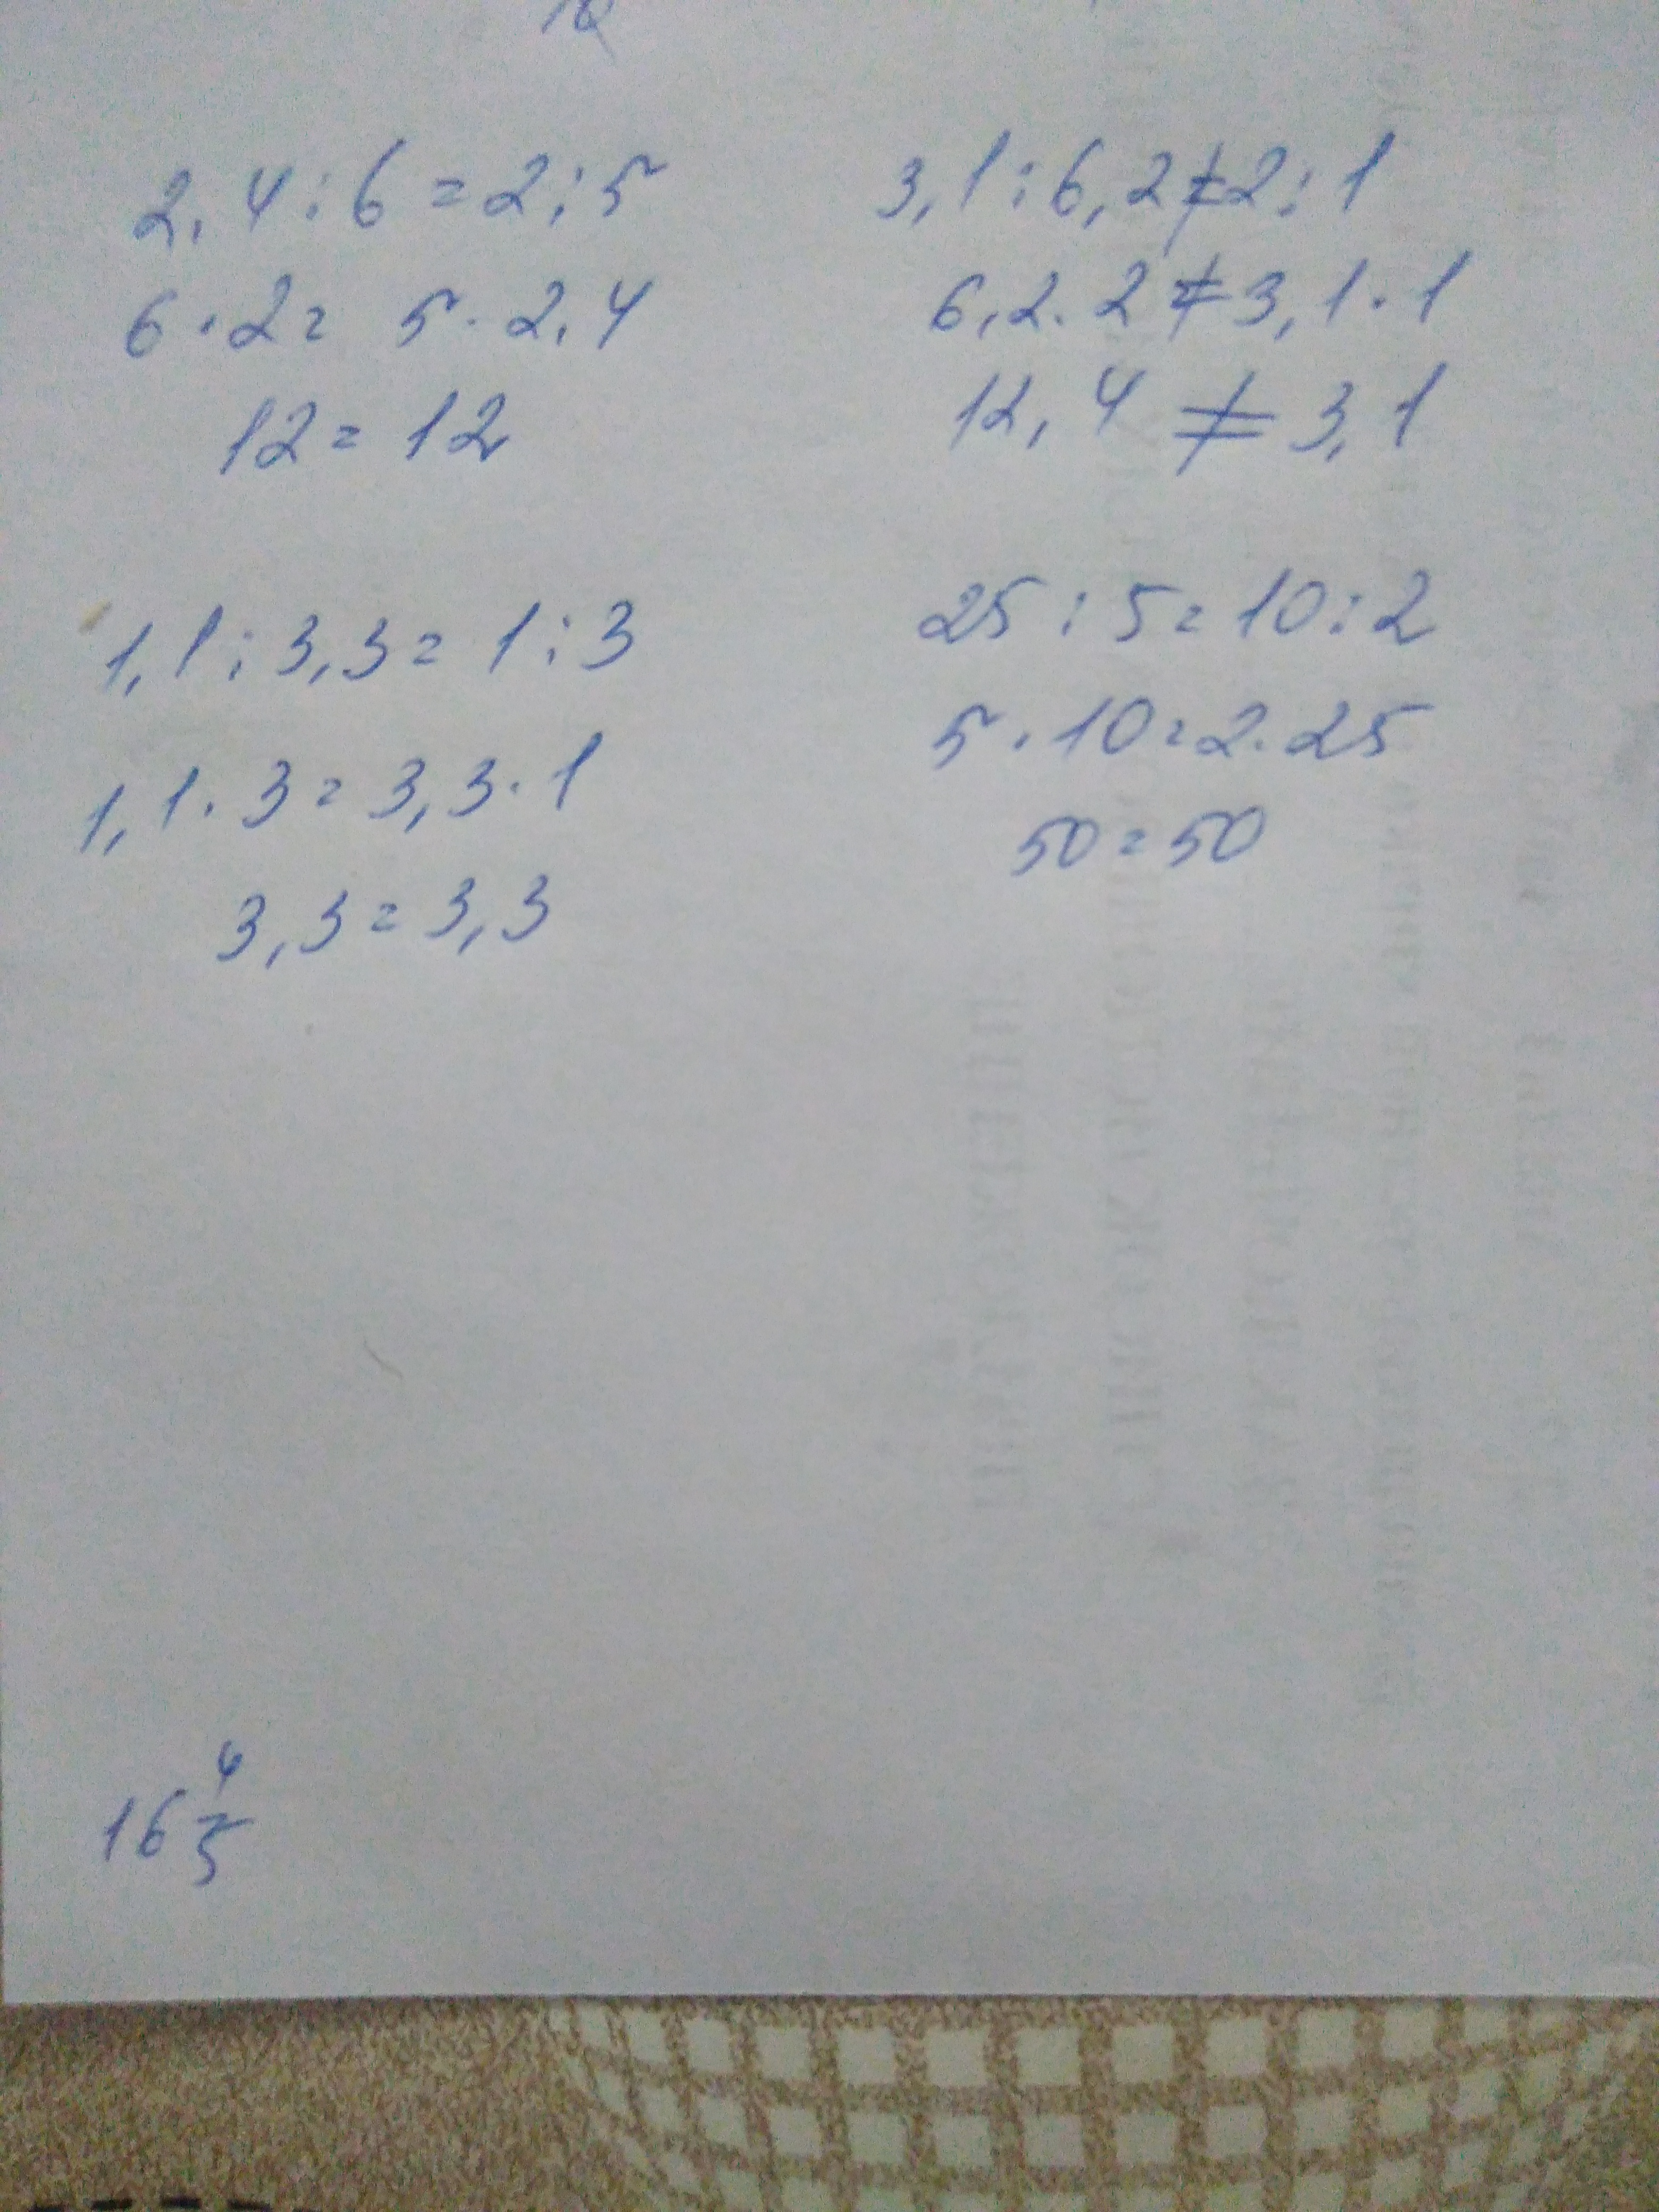 2,4:6=2:5
6·2=5·2,4
12=12
3,1:6,2≠2:1
6,2·2≠3,1·1
12,4≠3,1
1,1:3,3=1:3
1,1·3=3,3·1
3,3=3,3
25:5=10:2
5·10=2·25
50=50
16 4/5